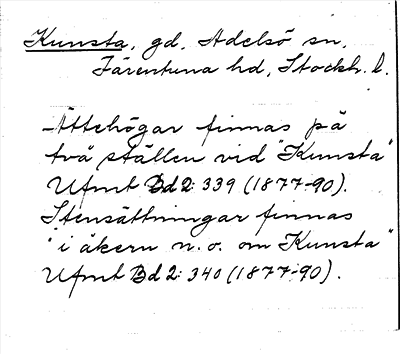 Kunsta, gd, Adelsö sn,
Färentuna hd, Stockh. l.
Ättehögar finnas på
två ställen vid "Kunsta"
Ufmt Bd 2: 339 (1877-90).
Stensättningar finnas
"i åkern n. o. om Kunsta"
Ufmt Bd 2: 340 (1877-90).